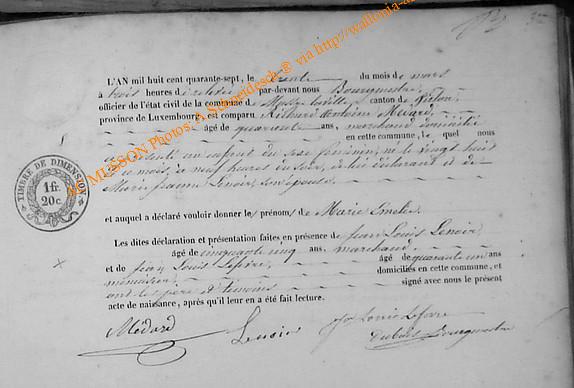 L'AN mil huit cent quarante-sept, le trente du mois de mars
à trois heures de relevée par-devant nous Bourgmestre,
officier de l'état civil de la commune de Mussy-la-ville, canton de Virton,
province de Luxembourg, est comparu Antoine Médard,
âgé de quarante ans, marchand domicilié
en cette commune, le quel nous
a présenté un enfant du sexe féminin, né le vingt huit
de ce mois, à neuf heures du soir, de lui déclarant et de
Marie Jeanne Lenoir, son épouse
et auquel a déclaré vouloir donner le prénom de Marie
Les dites déclaration et présentation faites en présence de Jean Louis Lenoir,
âgé de cinquante cinq ans, marchand
et de Jean Louis Lefèvre, âgé de quarante un ans
menuisier, domiciliés en cette commune, et
ont les père et témoins signé avec nous le présent
acte de naissance, après qu'il leur en a été fait lecture.
Médard
Jean Louis Lefevre
Bourgmestre
TIMBRE DE DIMENSION
1 fr.
20 c.
MUSSON Photos: A Schneidesch @ via http://wallonia-a